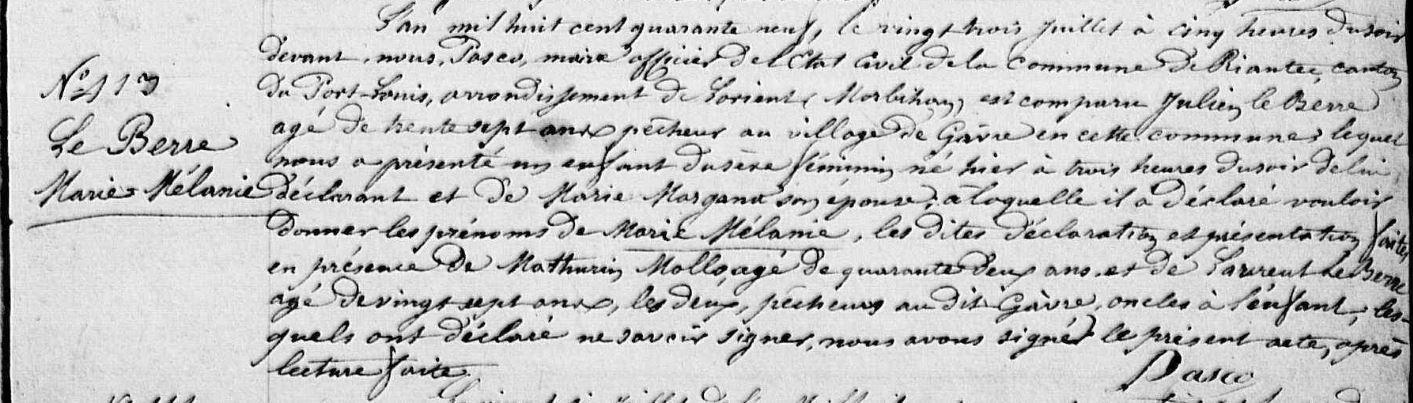 L'an mil huit cent quarante neuf, le vingt trois Juillet à Cinq heures du soir
devant, nous, Pasco, maire officier de l'Etat Civil de la Commune De Riantec, canton
N° 113
du Port-Louis, arrondissement de Lorient, Morbihan, est comparu Julien le Berre
agé de trente sept ans, pêcheur au village de Gâvre en cette commune, lequel
Le Berre
nous a présenté un enfant du sèxe féminin, né hier à trois heures du soir de lui
Marie-Mélanie
déclarant et de Marie Morgana son, épouse, à laquelle il a déclaré vouloir
donner les prénoms de Marie Mélanie, les dites déclaration et présentation faites
en présence de Mathurin Mollo, agé de quarante deux ans, et de Laurent Le Berre
agé de vingt sept ans, les deux, pêcheurs au dit Gâvre, oncles à l'enfant, les-
quels ont déclaré ne savoir signer, nous avons signé le présent acte, après
lecture faite
Pasco